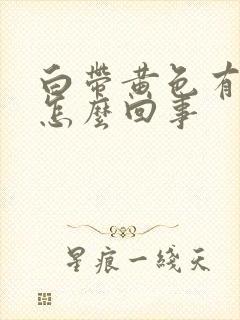 白帶黃色有
怎麼回事
星痕一綫天